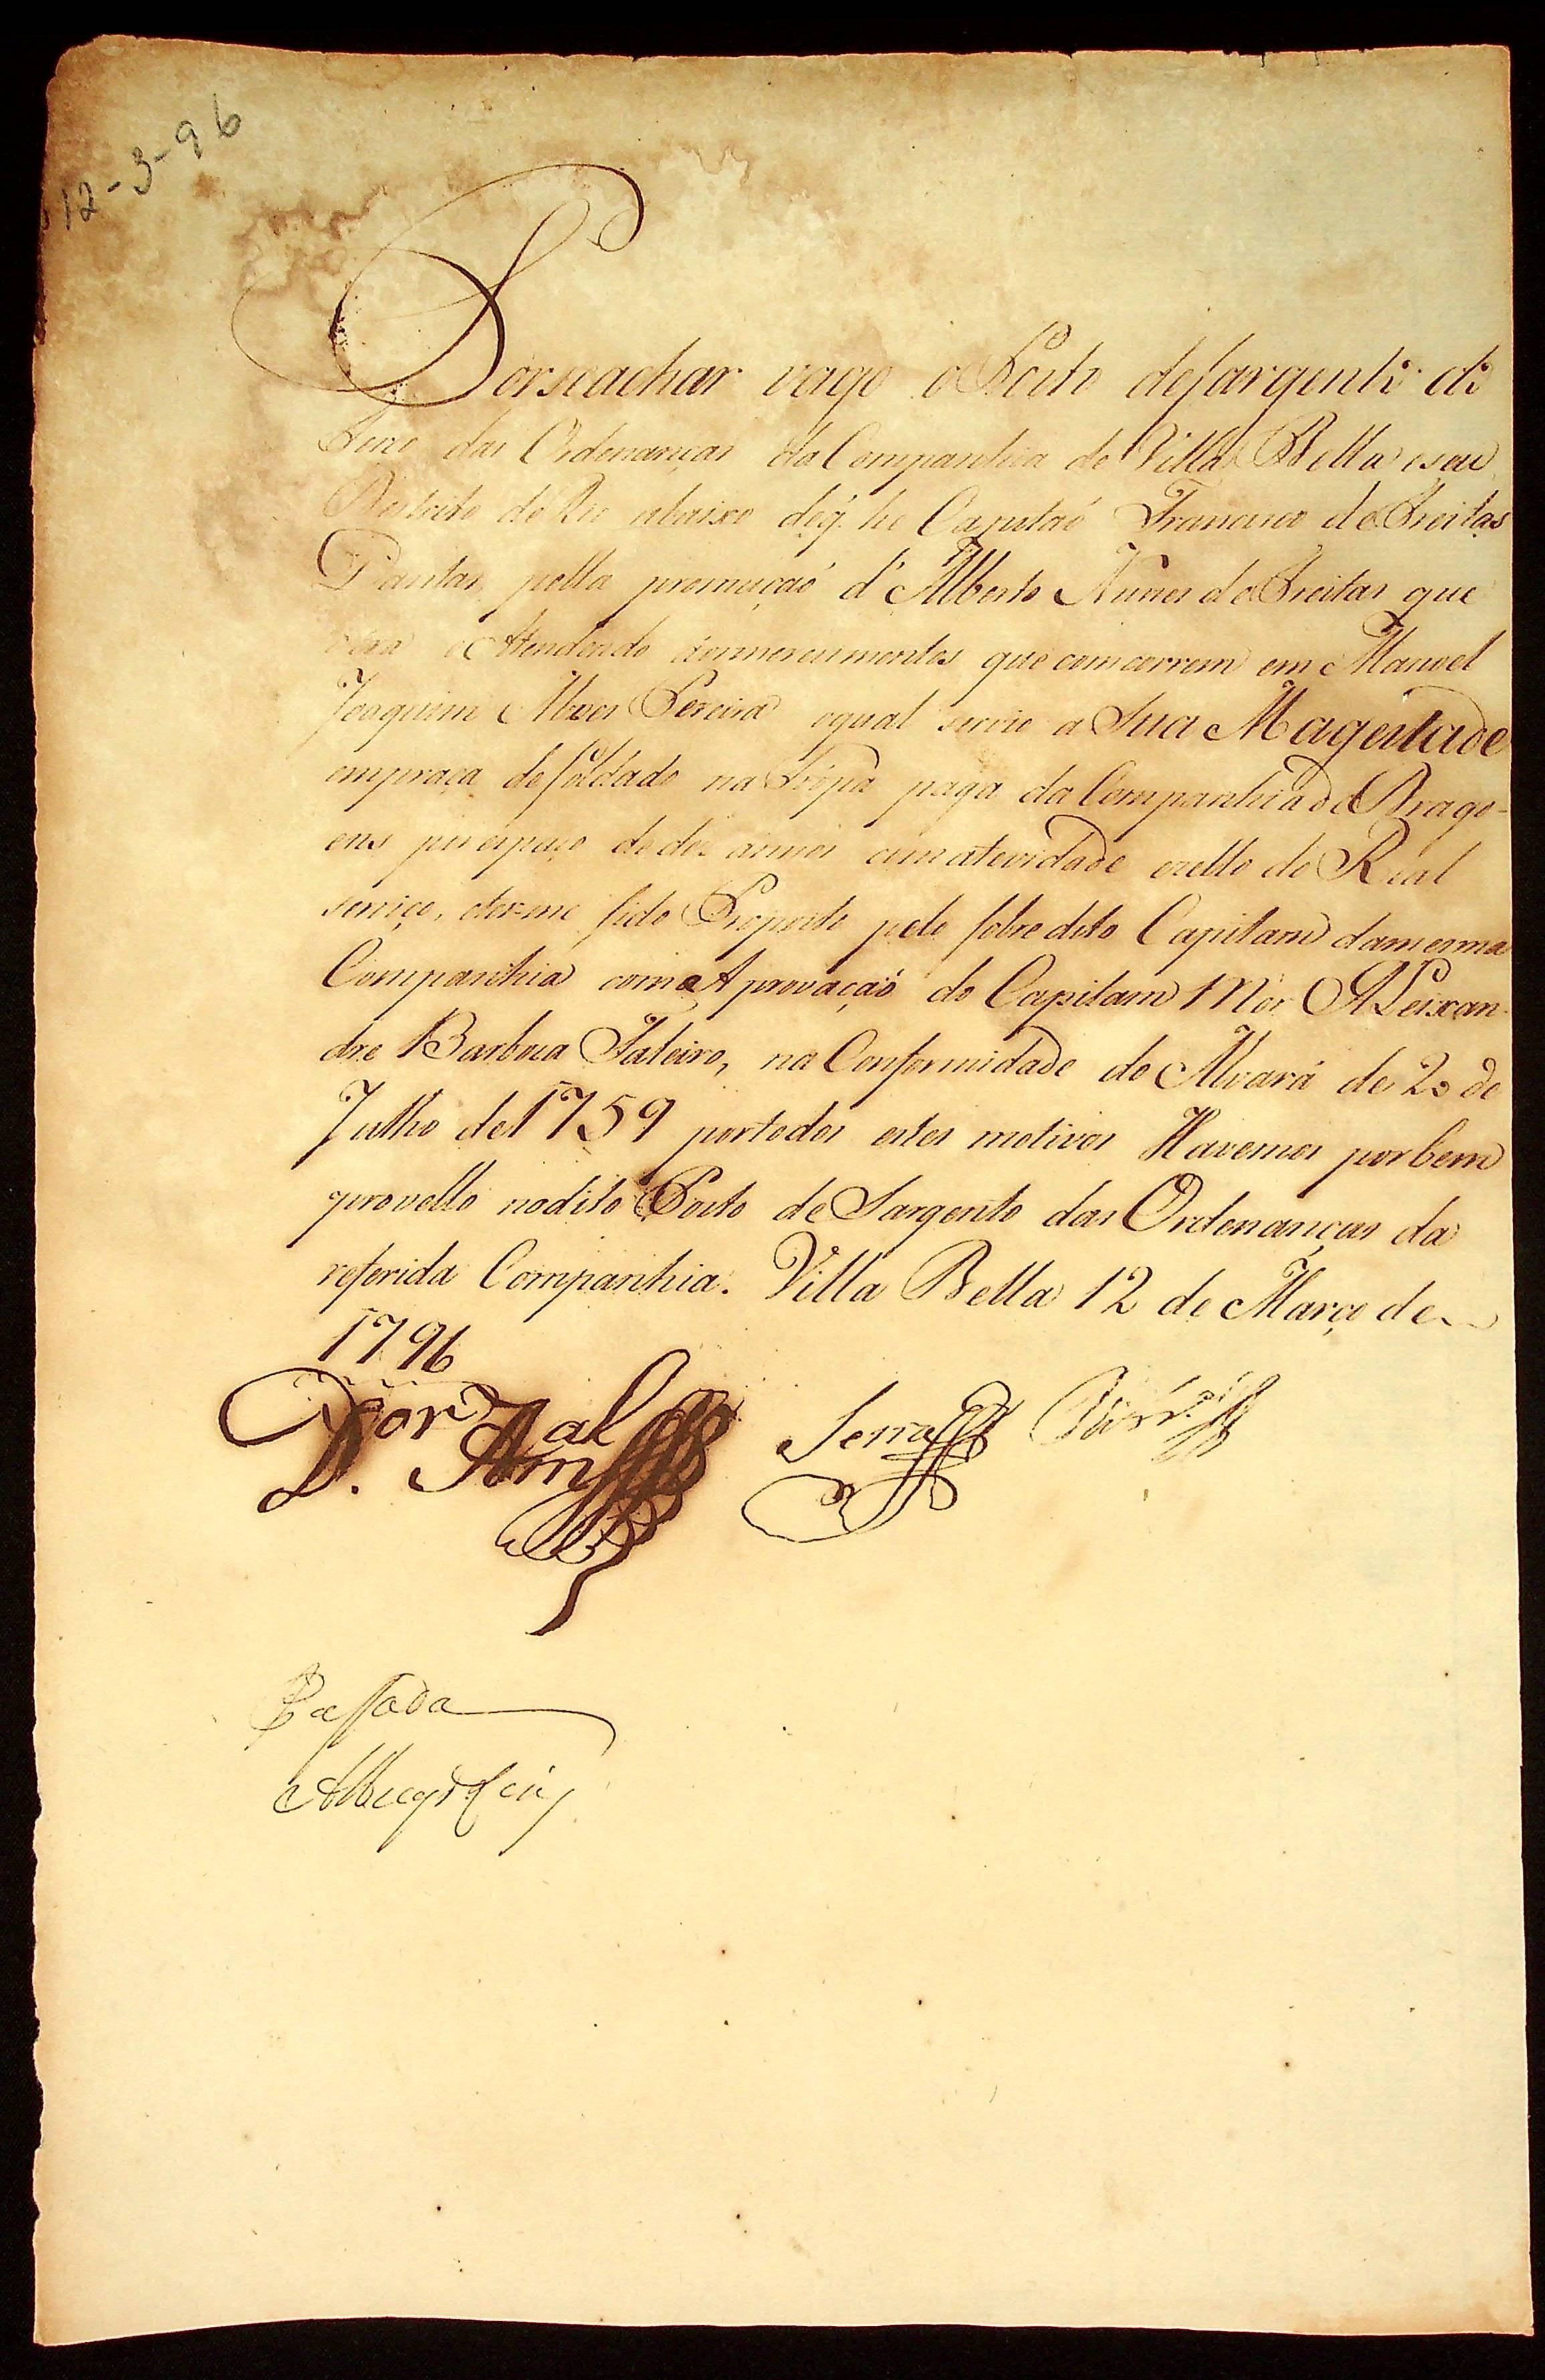 12-3-96
Por se achar vago o Posto de Sargento do
Nº das Ordenanças da Companhia de Villa Bella e seu
Destrito do Rio abaixo de q. he Capitaó Francisco de Freitas
Dantas, pella promuçaó d' Alberto Nunes de Freitas que
Atendendo aos merecimentos que comcorrem em Manoel
Joaquim Alves Pereira o qual servio a Sua Magestade
em praça de Soldado na Trôpa paga da Companhia de Drago-
ens por espaço de dez annos com atevidade e zello do Real
serviço, e ter-me sido Proposto pelo sobre dito Capitam da mesma
Companhia com a Aprovaçaó do Capitam Mór Aleixan-
dre Barboza Fateiro, na Conformidade do Alvará de 20 de
Julho de 1759 por todos estes motivos Havemos por bem
provello no dito Posto de Sargento das Ordenanças da
referida Companhia. Villa Bella 12 de Março de
1796
D. Am
Serra
Passada